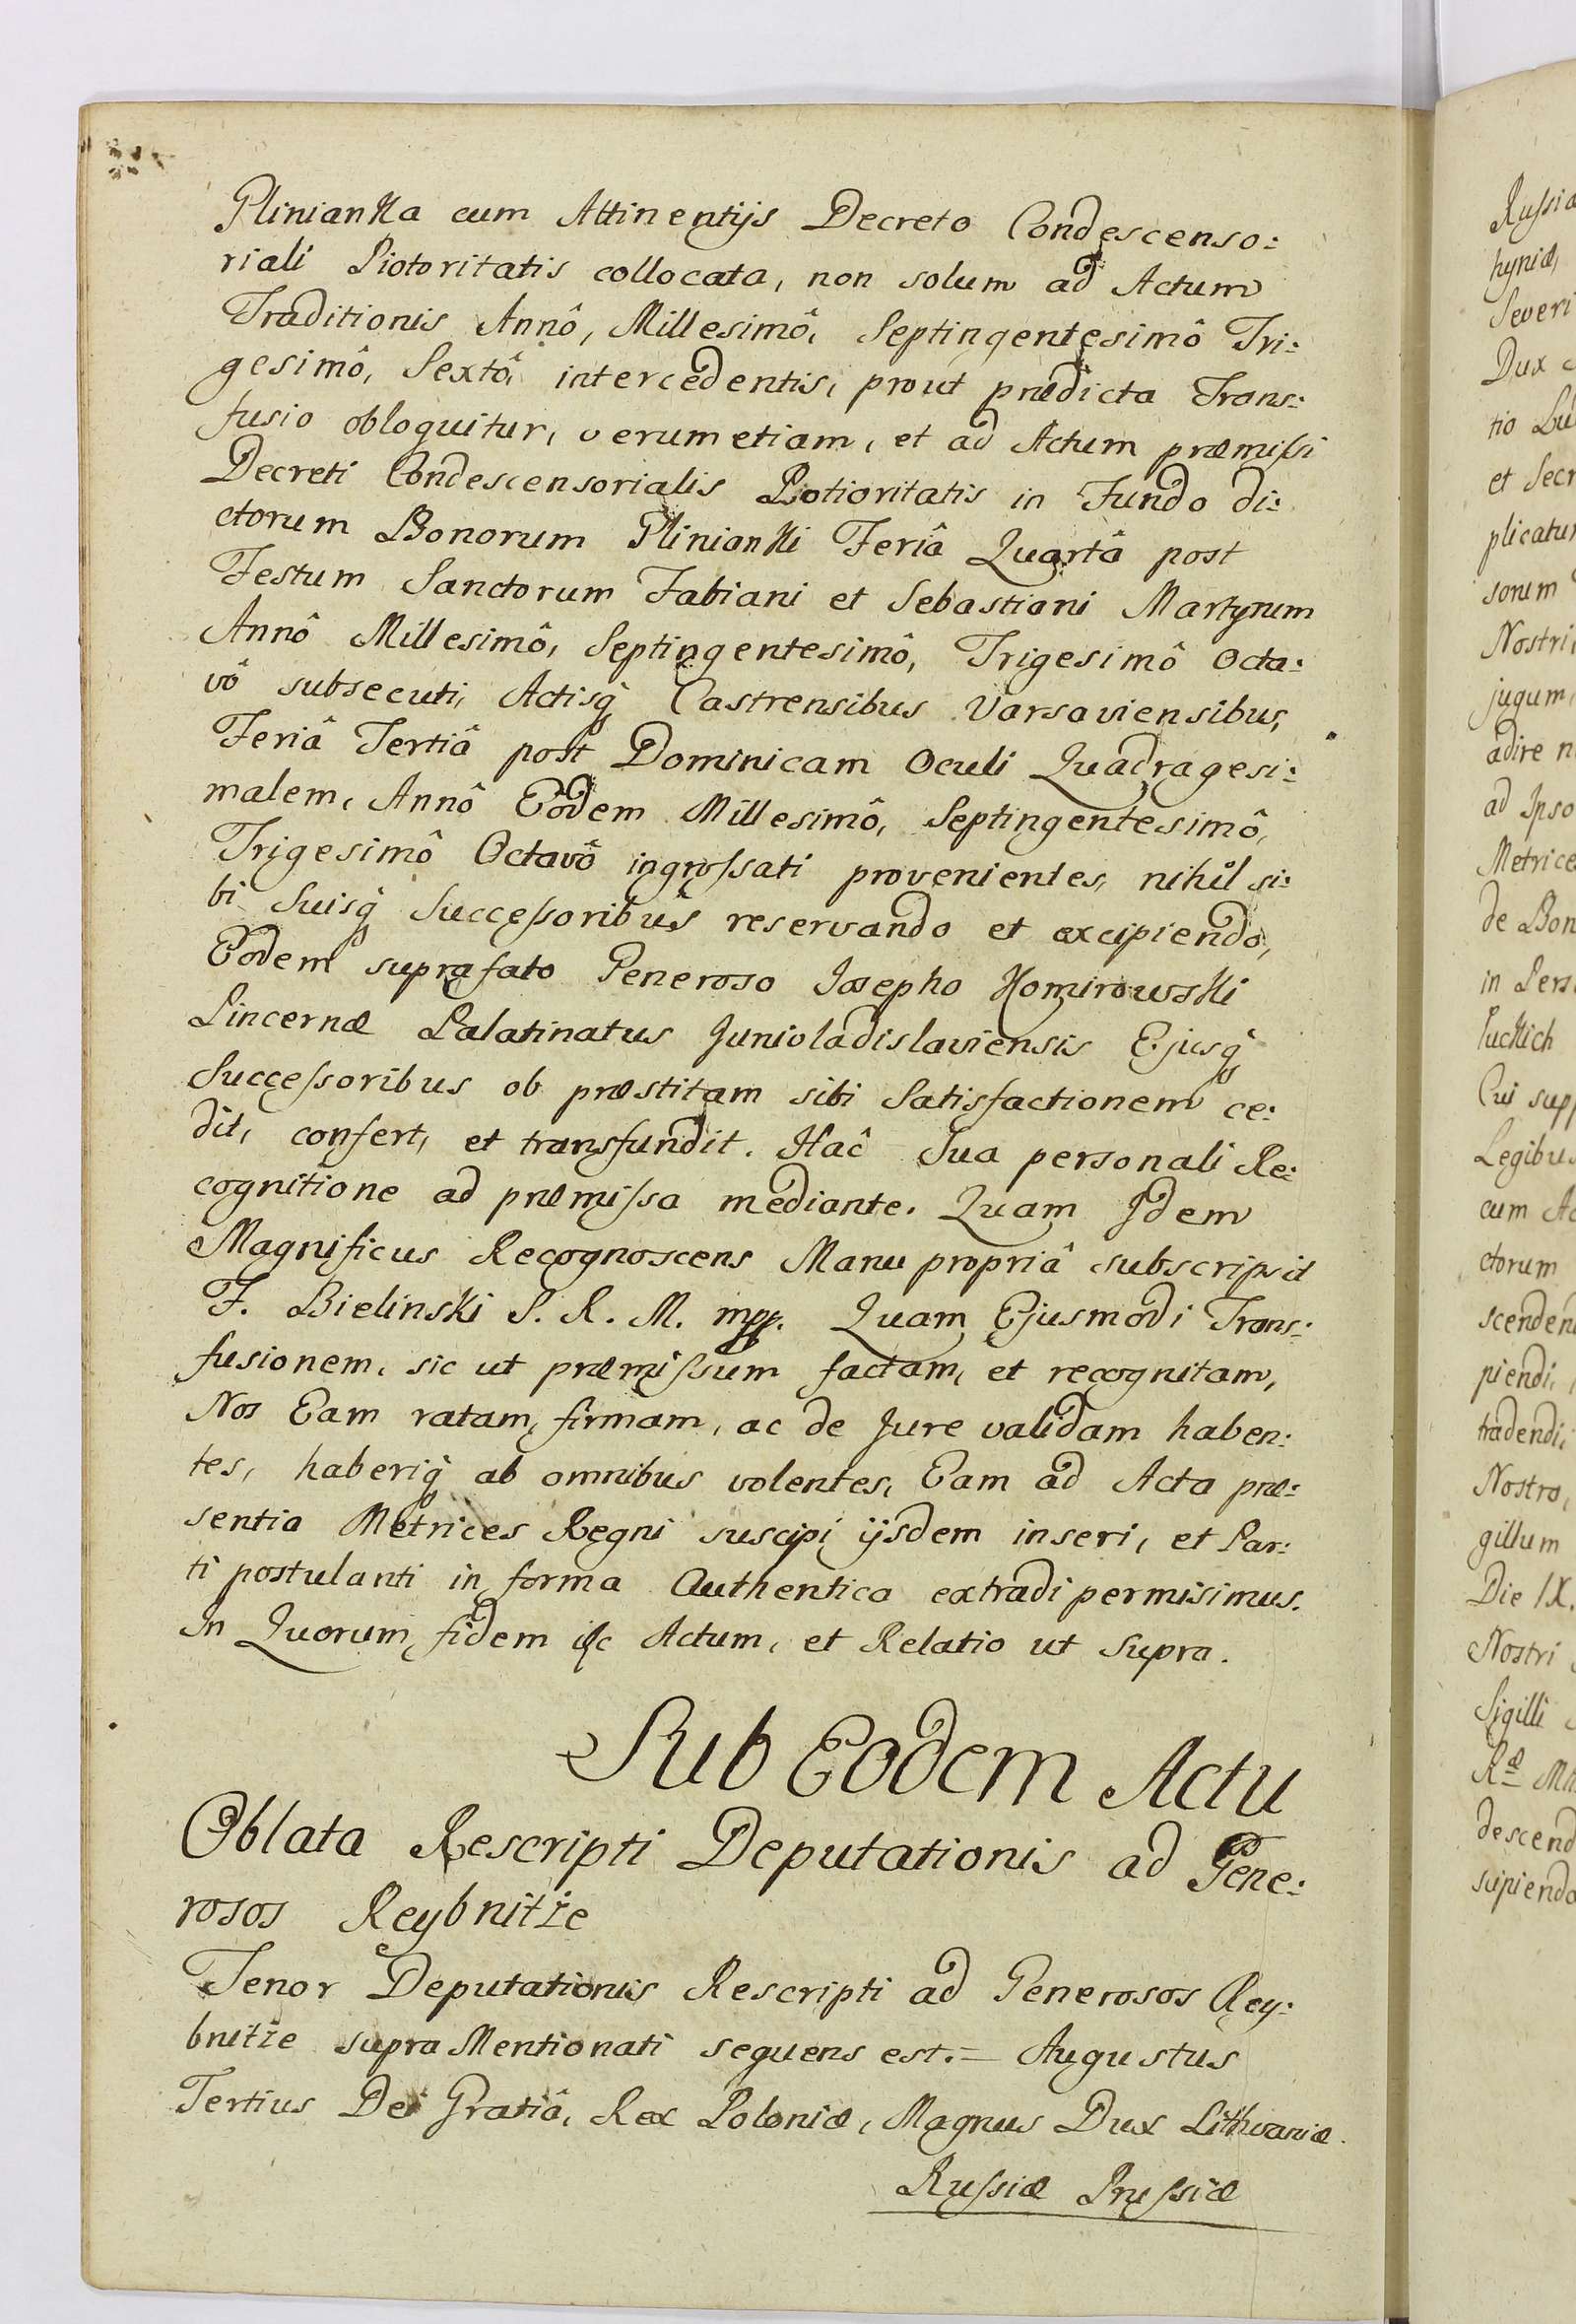 Glinianka cum Attinentÿs Decreto Condescenso:
riali Piotoritatis collocata, non solum ad Actum
Traditionis Annô, Millesimô, Septingentesimô Tri:
gesimô, Sextô, intercedentis, prout prædicta Trans:
fusio obloquitur, verum etiam, et ad Actum præmissi
Decreti Condescensorialis Potioritatis in Fundo di:
ctorum Bonorum Glinianki Feriâ Quartâ post
Festum Sanctorum Fabiani et Sebastiani Martyrum
Annô Millesimô, Septingentesimô, Trigesimô Octa:
vô subsecuti, Actisq̀ Castrensibus Varsaviensibus,
Feriâ Tertiâ post Dominicam Oculi Quadragesi:
malem, Annô Eôdem Millesimô, Septingentesimô,
Trigesimô Octavô ingrossati provenientes, nihil si:
bi Suisq̀ Successoribus reservando et excipiendo,
Eodem suprafato Generoso Josepho Komirowski
Pincernæ Palatinatus Junioladislaviensis Ejusq̀
Successoribus ob præstitam sibi Satisfactionem ce:
dit, confert, et transfundit. Hac Sua personali Re:
cognitione ad præmissa mediante. Quam Idem
Magnificus Recognoscens Manu propriâ subscripsit
F. Bielinski S. R. M. mpp. Quam Ejusmodi Trans:
fusionem, sic ut præmissum factam, et recognitam,
Nos Eam ratam, firmam, ac de Jure validam haben:
tes, haberiq̀ ab omnibus volentes, Eam ad Acta præ:
sentia Metrices Regni suscipi ÿsdem inseri, et Par:
ti postulanti in forma Authentica extradi permisimus.
In Quorum fidem &c Actum, et Relatio ut Supra.
Sub Eodem Actu
Oblata Rescripti Deputationis ad Gene:
rosos Reybnitze
Tenor Deputationis Rescripti ad Generosos Rey:
bnitze supra Mentionati sequens est. = Augustus
Tertius Dei Gratiâ, Rex Poloniæ, Magnus Dux Lithvaniæ.
Russiæ Prussiæ
Russia
hyniæ,
Severi
Dux
tio Lu
et Secr
plicatur
sonem
Nostri
jugum
adire n
ad Ipso
Metrice
de Bon
in Pers
Puckich
Cui supp
Legibus
cum Ac
ctorum
scenden
piendi,
tradendi,
Nostro,
gillum
Die IX.
Nostri
Sigilli
descend
scipiendo